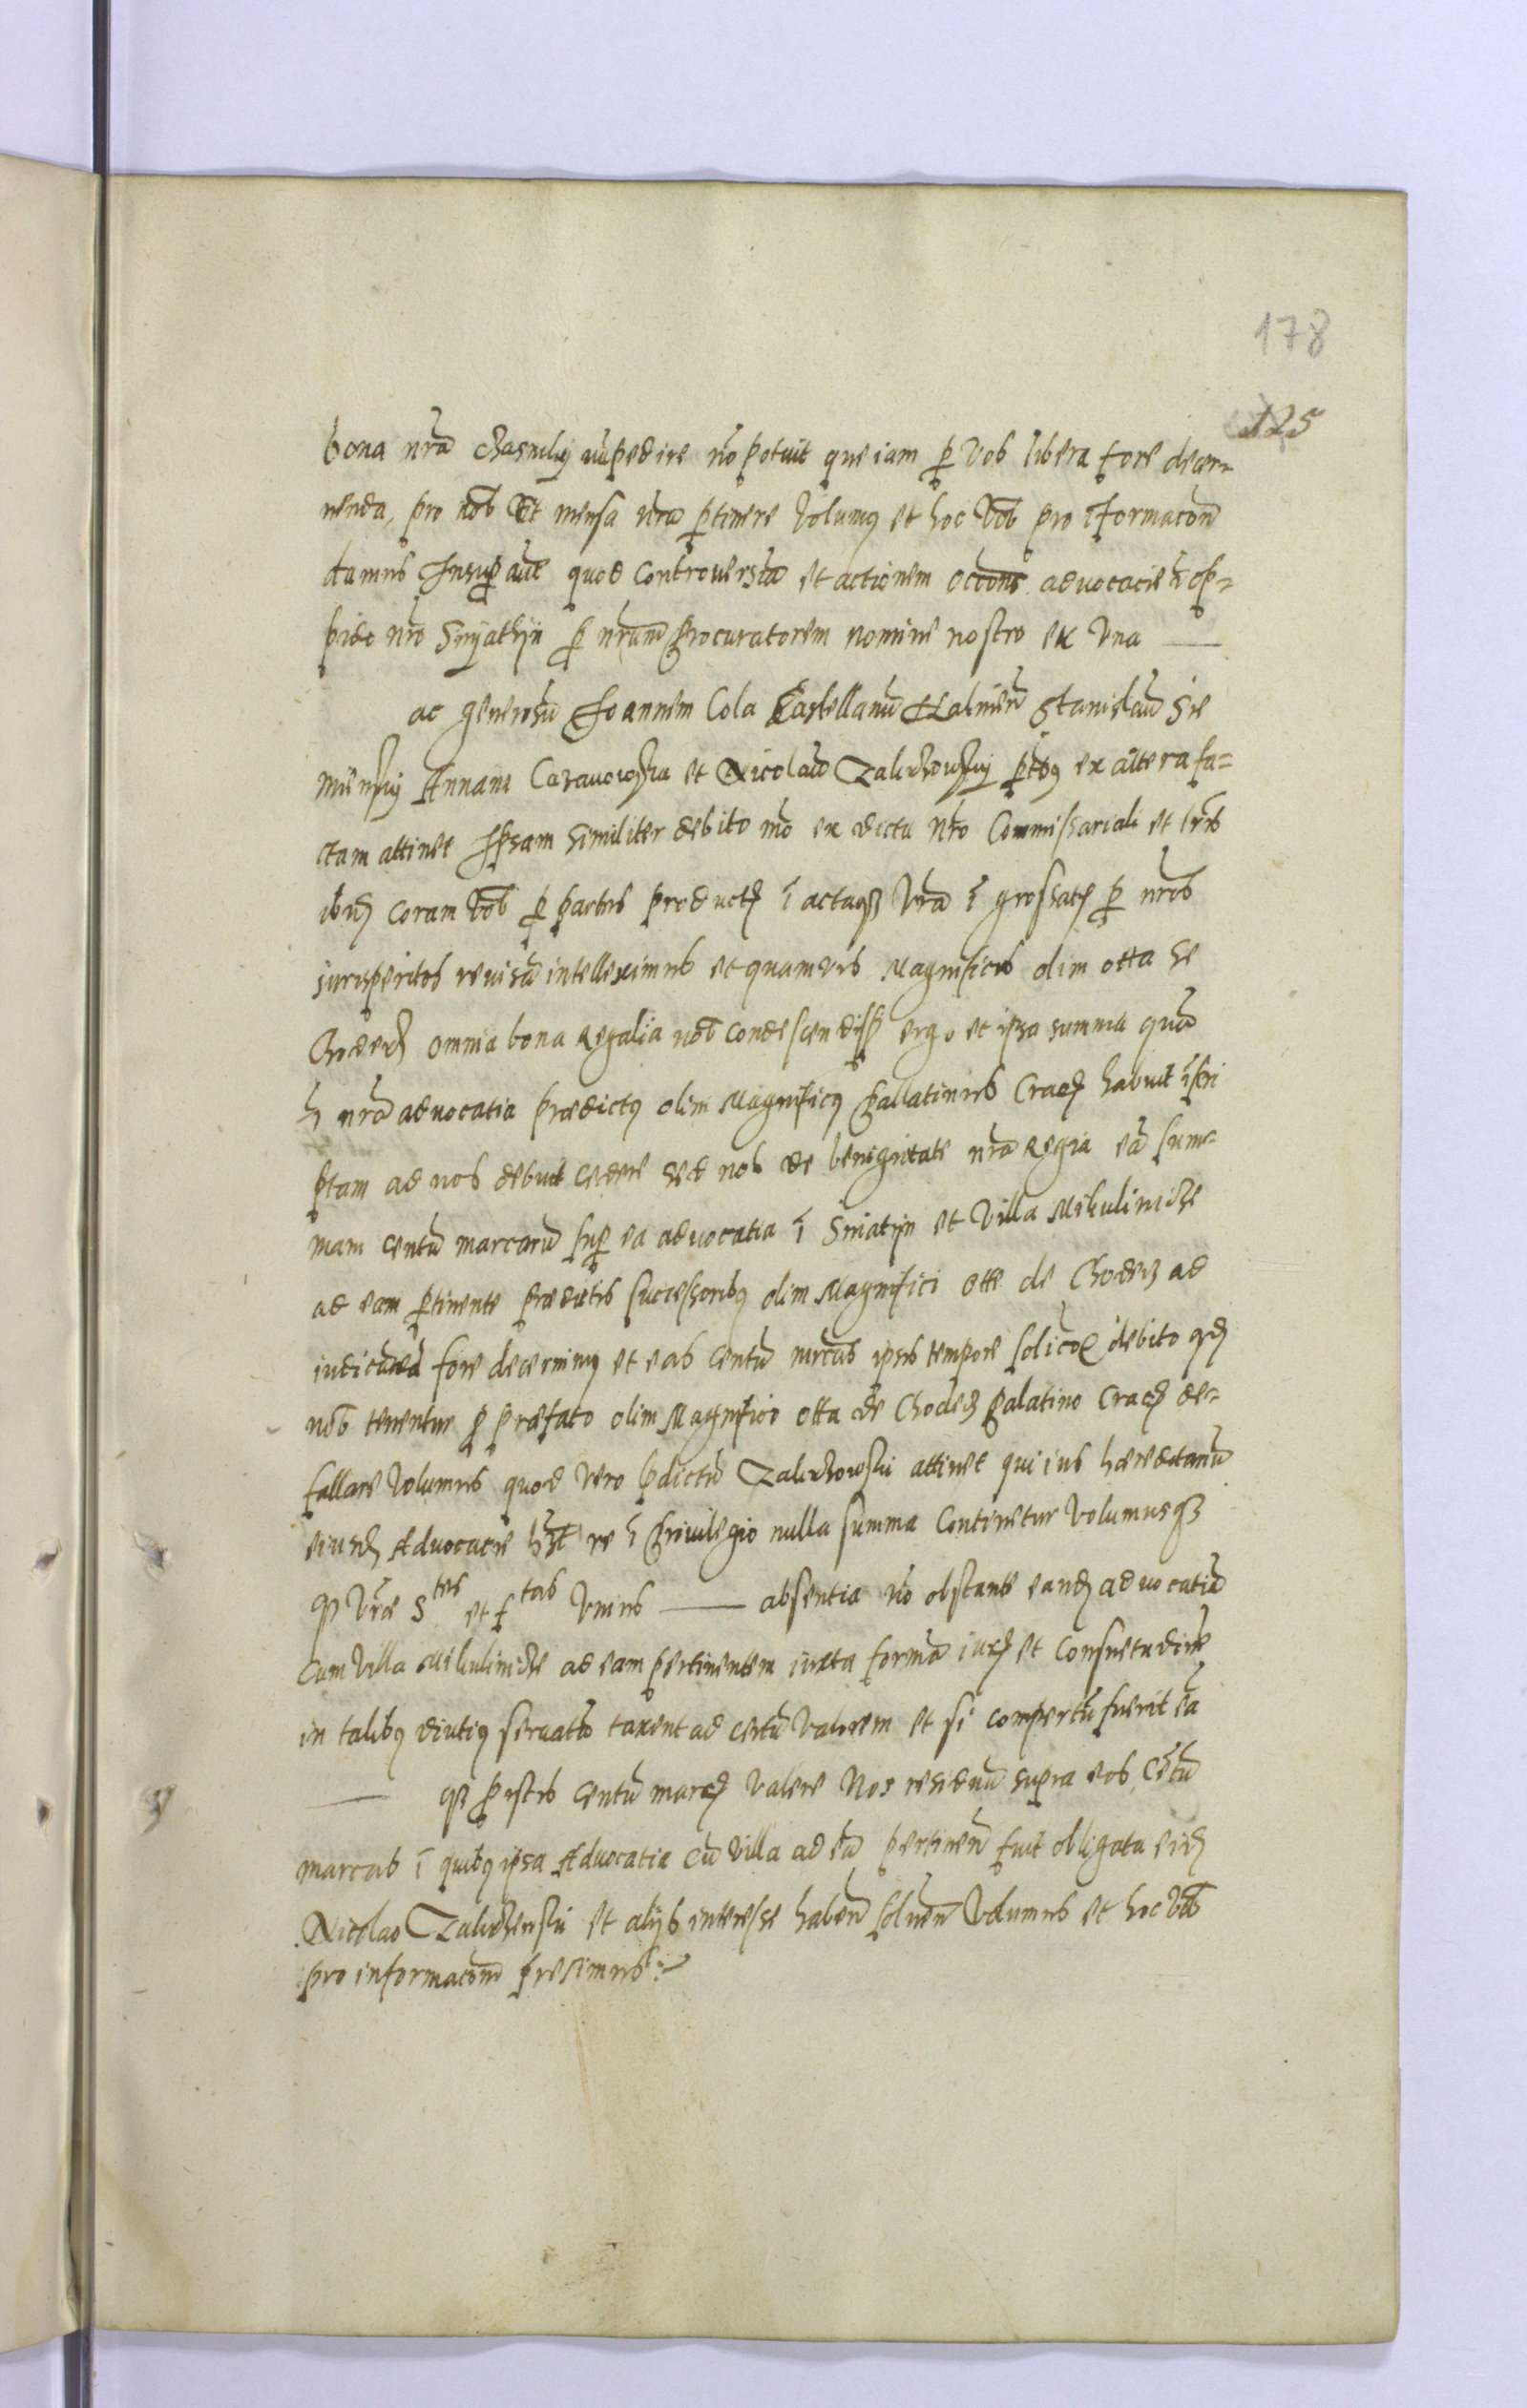 178
125
bona nrã Chasniky impedire nõ potuit que iam p vob libera fore decer-
nenda, pro nob et mensa nrã ptinere volumq et hoc vob pro iformacõn
damus Insup autẽ quod controversiã et actionem occons advocacie in op-
pido nro Snyathyn p nrum procuratorem nomine nostro ex una —
ac generosũ Joannem Cola Castellanũ Haliciẽn Stanislaũ Sie
miensky Annam et Nicolaũ Zaluchowsky ex altera fa-
ctam attinet Ipsam similiter debito mõ ex dictu nro Commissariali et lris
ibid coram vob p partes product i actaqz vrã i grossat p nrob
iurisperitos revisã intelleximus et quamvis Magnificus olim otta de
Chodecz omnia bona Regalia nob condescendisset ergo et ipsa summa quã
in nrã advocatia prædictq olim Magnificq pallatinus Crac habuit iscri
ptam ad nos debuit cedere sed nob de benignitate nrã Regia eã sum-
mam centũ marcarũ sup ea advocatia i Sniatyn et villa Mikulincze
ad eam ptinente prædictis successoribq olim Magnifici otte de Chodecz ad
iudicand fore decernimq et eas centũ marcas ipsis tempore debito
nob tenentur p præfato olim Magnifico otta de Chodecz palatino Crac de-
fallare volumus quod vero Zaluchowski attinet qui ius hæreditariũ
eiusd Advocacie hzt re i privilegio nulla summa continetur volumusqz
qz Vræ Stes et ftas unius — absentia nõ obstante eand advocatiã
cum villa Mikulincze ad eam pertinentem iuxta formã iur et consuetudine
in talibq diutiq servato taxent ad certũ valorem et si compertũ fuerit eã
— qz p istis centũ marc valere Nos residuũ supra eos cẽtũ
marcas i quibq ipsa Advocatia cũ villa ad eã pertinen fuit obligata eid
Nicolao Zaluchowski et alijs interesse haben solven volumus et hoc vob
pro informacõne